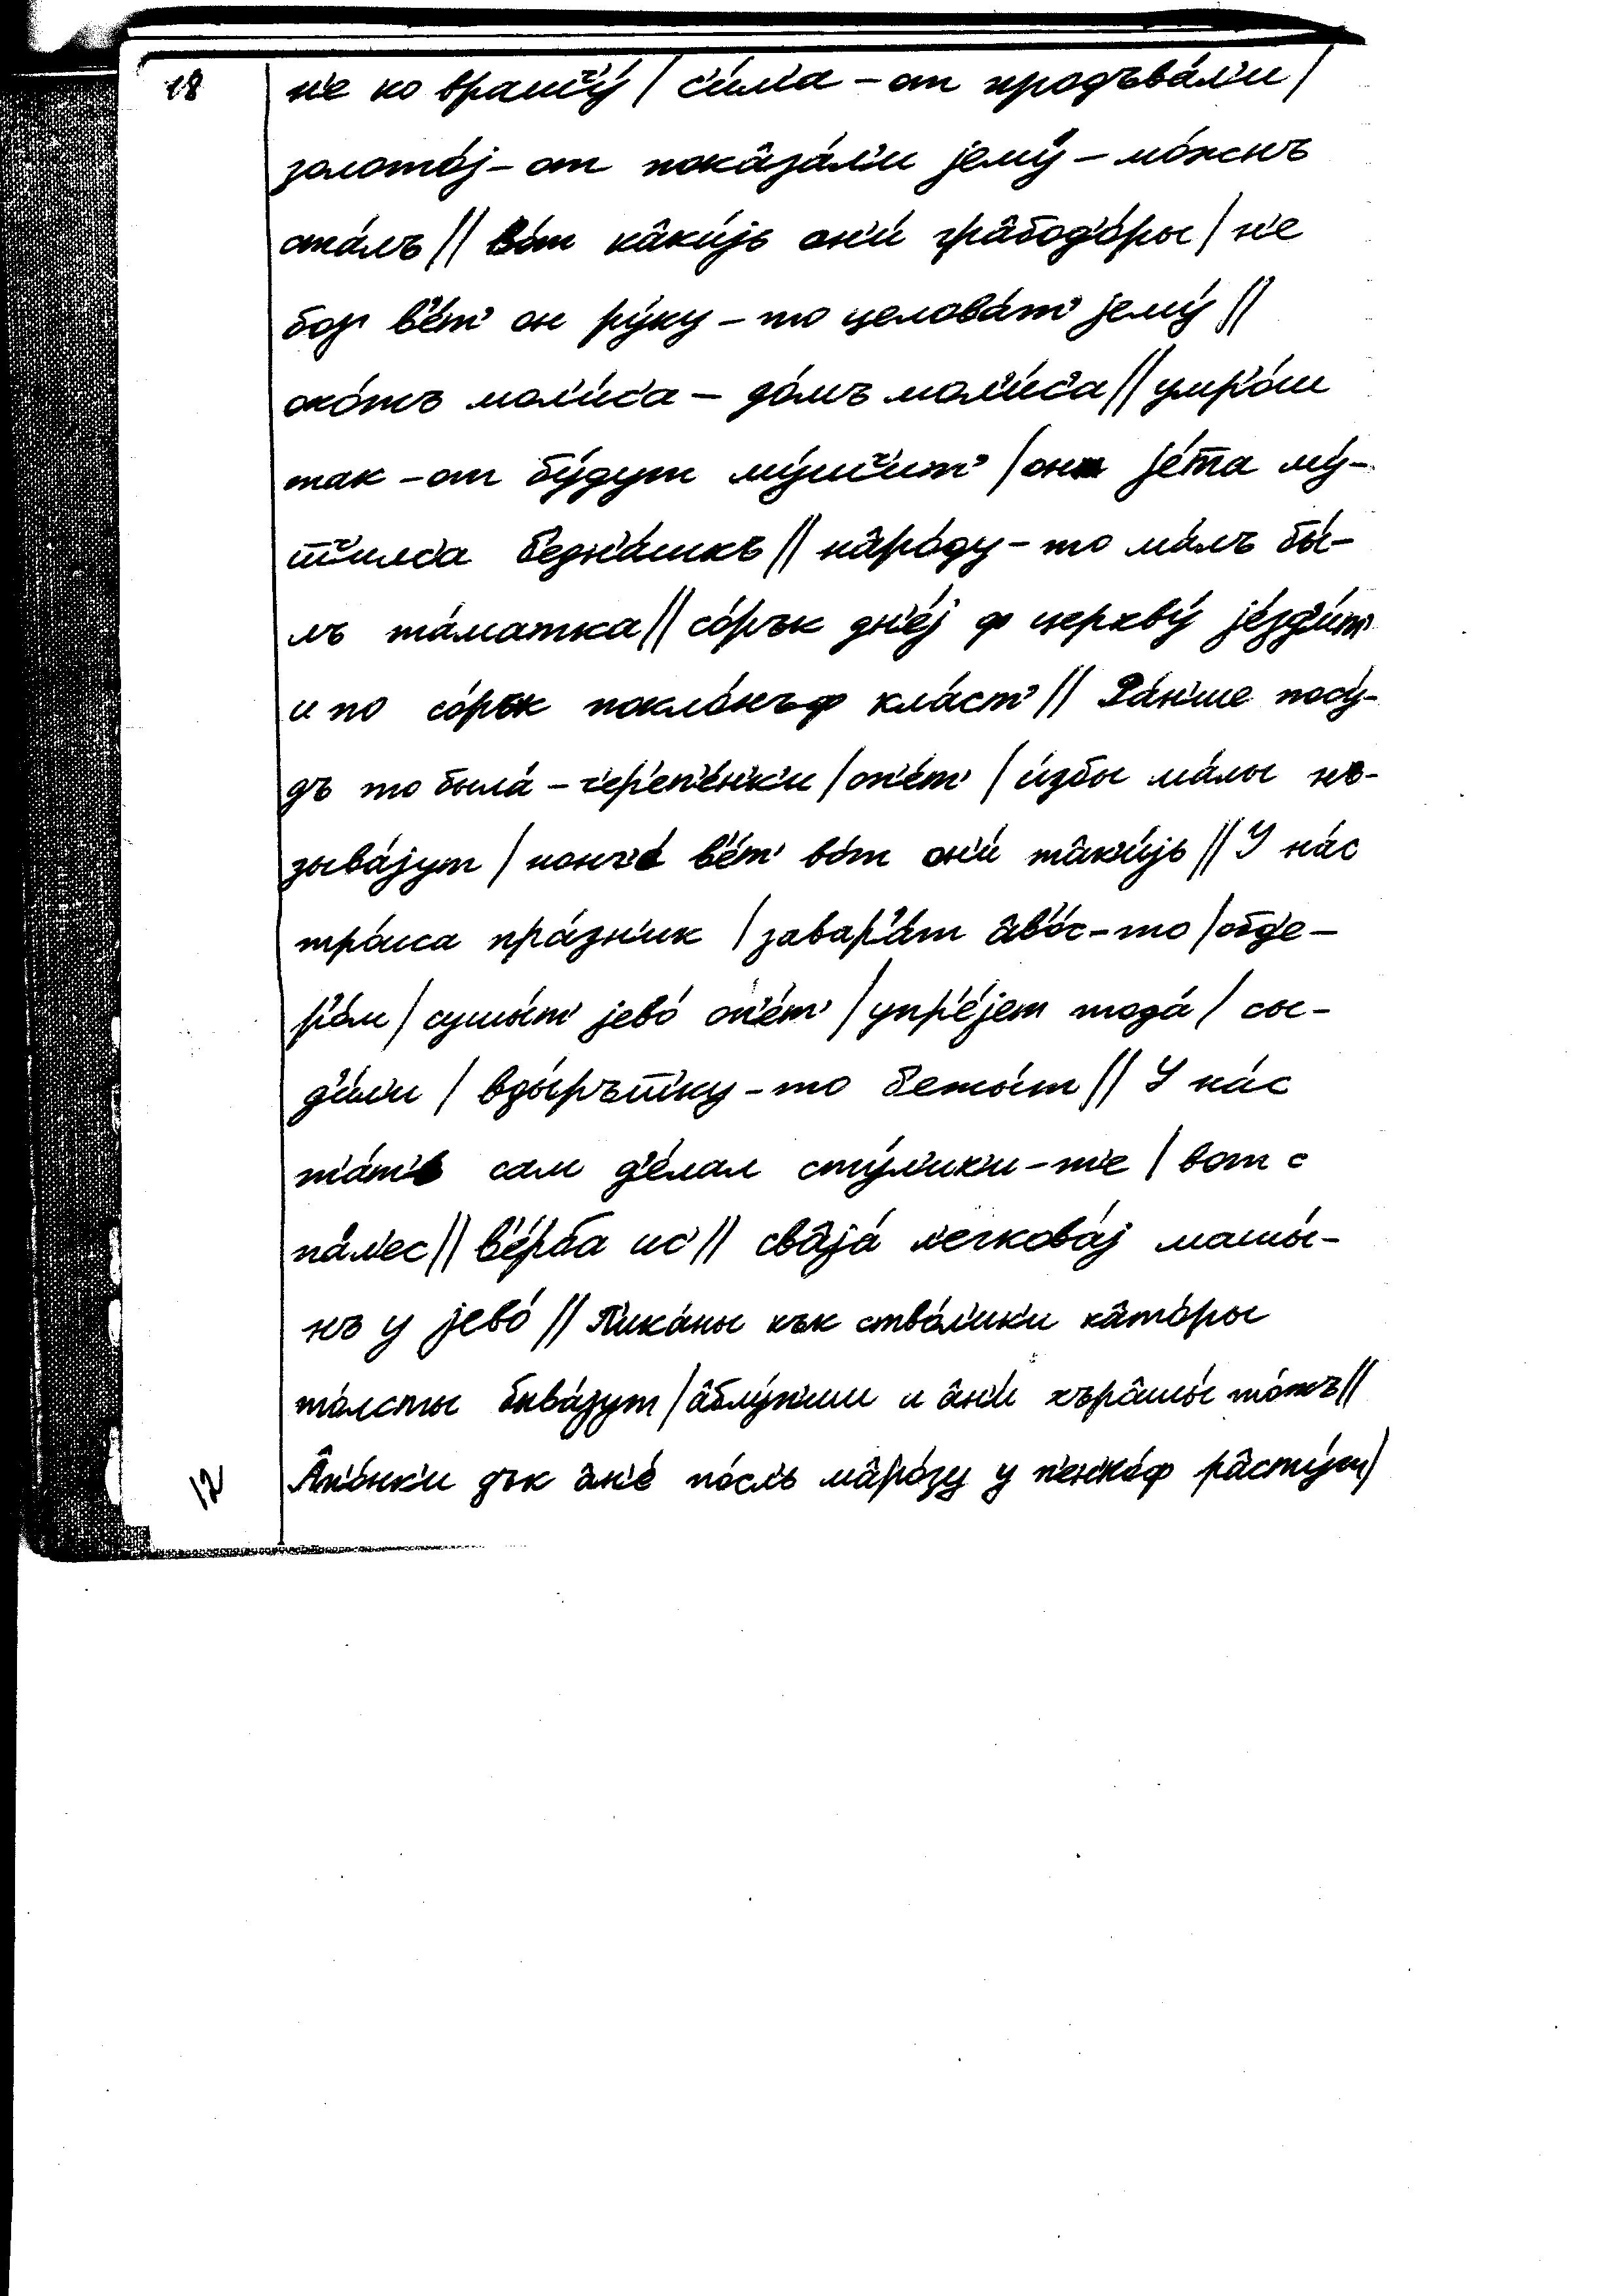 18 н'е ко врашч'у́ / с'и́м'а – от продъва́л'и /
золото́ј – от пока̂за́л'и јему́ – мо́жнъ
ста́лъ // Во́т ка̂ки́јь он'и́ гра̂бод'о́ры / н'е
бог в'е́т' он ру́ку – то целова́т' јему́ //
охо́тъ мол'и́с'а – до́мъ мол'и́с'а // умр'о́ш
так – от бу́дут му́шч'ит' / он је́т'а му́-
шч'илс'а б'едн'а́шкъ // на̂ро́ду – то ма́лъ бы́-
лъ та́матка // со́рък дн'е́ј ф церкву́ је́зд'ит'
и по со́рък покло́нъф кла́ст' // Ра́н'ше посу́-
дъ то была́ – ч'ер'еп'е́нк'и / оп'е́т' / и́збы ма́лы нъ-
зыва́јут / нонч'е в'е́т' во́т он'и́ та̂ки́јь // У на́с
тро́иса пра́зн'ик / завар'а́т а̂в'о́с – то / обд'е-
р'о́м / сушы́т' јево́ оп'е́т' / упр'е́јет тода́ / сы-
д'и́л'и / вды́рътк'у – то б'ежы́т // У на́с
т'а́т'ь сам д'е́лал сту́л'ики – т'е / вот с
па́л'ес // в'е́рба ис' // сва̂ја́ л'егкова́ј машы́-
нъ у јево́ // П'ика́ны кък ство́л'ики ка̂то́ры
то́лсты быва́јут / а̂блу́п'иш и а̂н'и́ хъра̂шы́ то́жъ //
12 А̂п'о́нк'и дък а̂н'е́ по́сль ма̂ро́зу у п'енко́ф ра̂сту́т /